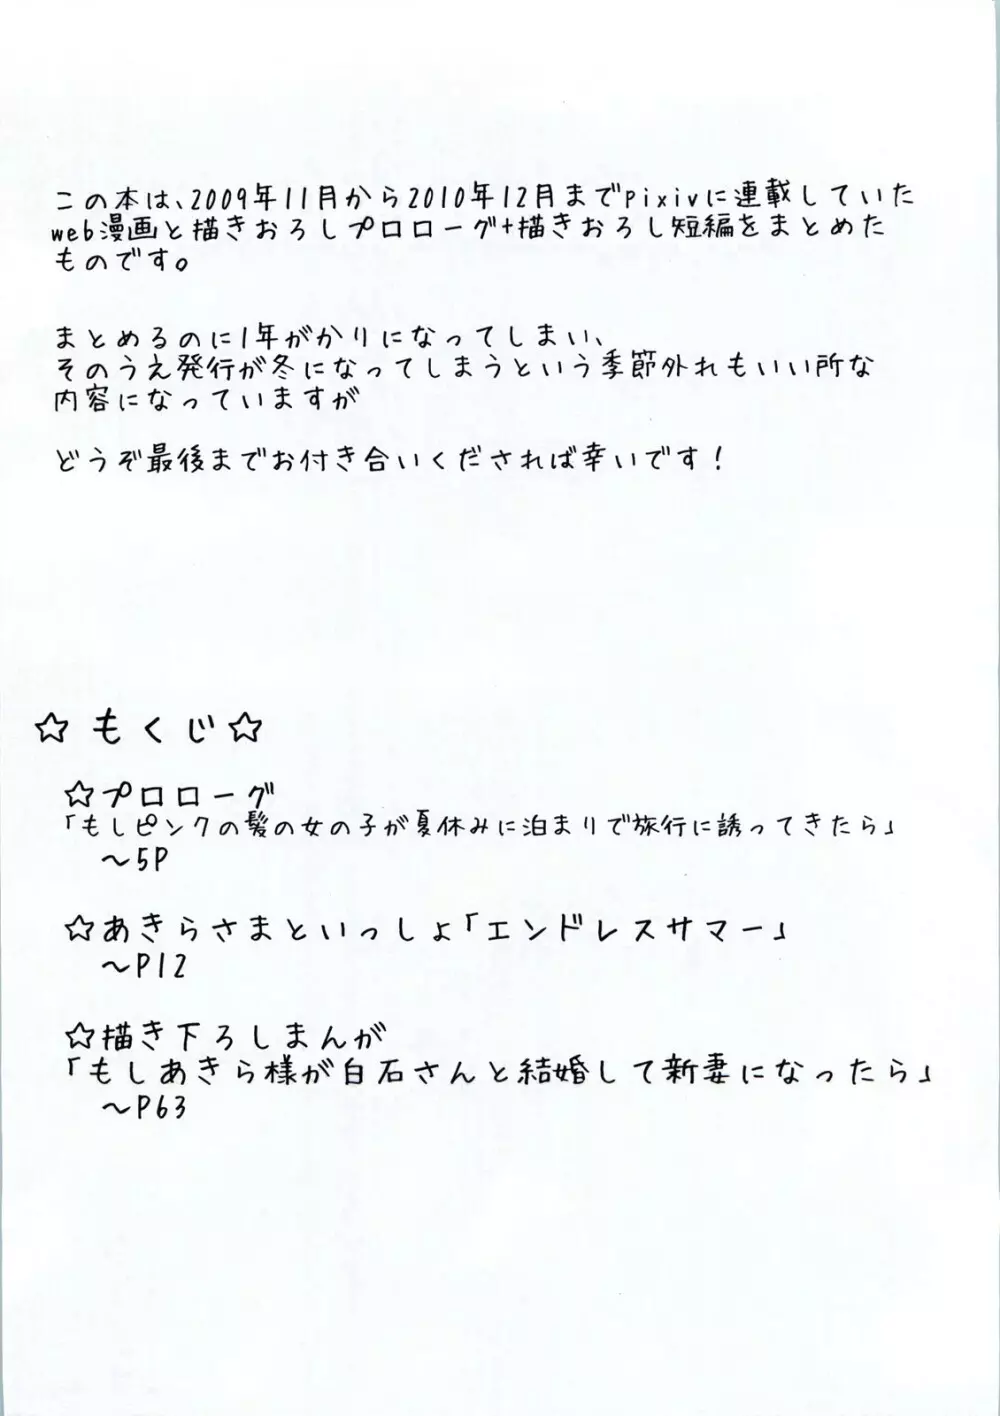 この本は、2009年11月から2010年12月までpixivに連載していた
web漫画と描きおろしプロローグ+描きおろし短編をまとめた
ものです。
まとめるのに1年がかりになってしまい、
そのうえ発行が冬になってしまうという季節外れもいい所な
内容になっていますが
どうぞ最後までお付き合いくだされば幸いです!
☆もくじ☆
☆プロローグ
「もしピンクの髪の女の子が夏休みに泊まりで旅行に誘ってきたら」
～5P
☆あきらさまといっしょ「エンドレスサマー」
～P12
☆描き下ろしまんが
「もしあきら様が白石さんと結婚して新妻になったら」
～P63